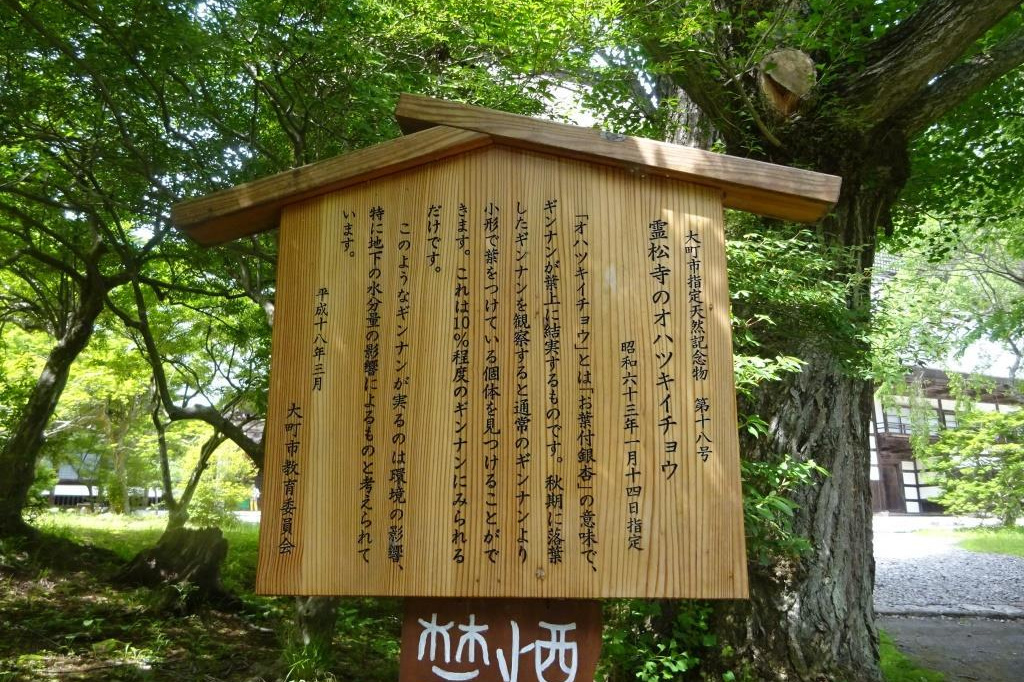 大町市指定天然記念物 第十八号
霊松寺のオハツキイチョウ
昭和六十三年一月十四日指定
「オハツキイチョウ」とは「お葉付銀杏」の意味で、
ギンナンが葉上に結実するものです。秋期に落葉
したギンナンを観察すると通常のギンナンより
小形で葉をつけている個体を見つけることがで
きます。これは10%程度のギンナンにみられる
だけです。
このようなギンナンが実るのは環境の影響、
特に地下の水分量の影響によるものと考えられて
います。
平成十八年三月
大町市教育委員会